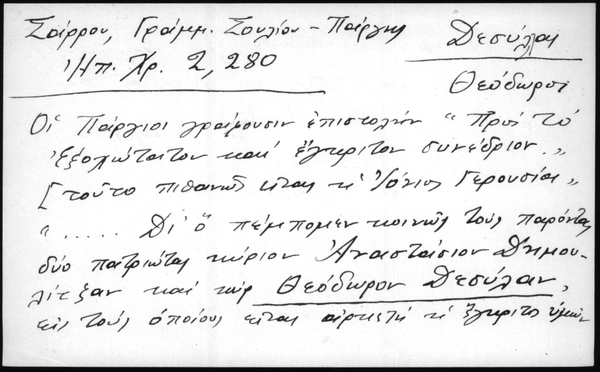 Σάρρου, Γράμμ. Σουλίου - Πάργας
Ἠπ. Χρ. 2, 280
Δεσύλας
Θεόδωρος
Οἱ Πάργιοι γράφουσιν ἐπιστολὴν "Πρὸς τὸ
ἐξοχώτατον καὶ ἔγκριτον συνέδριον.,,
[τοῦτο πιθανῶς εἶναι ἡ Ἰόνιος Γερουσία,,
"..... Δι' ὃ πέμπομεν κοινῶς τοὺς παρόντας
δύο πατριώτας κύριον Ἀναστάσιον Δημου-
λίτζαν καὶ κὺρ Θεόδωρον Δεσύλαν,
εἰς τοὺς ὁποίους εἶναι ἀρκετὴ ἡ ἔγκριτος ὑμῶν